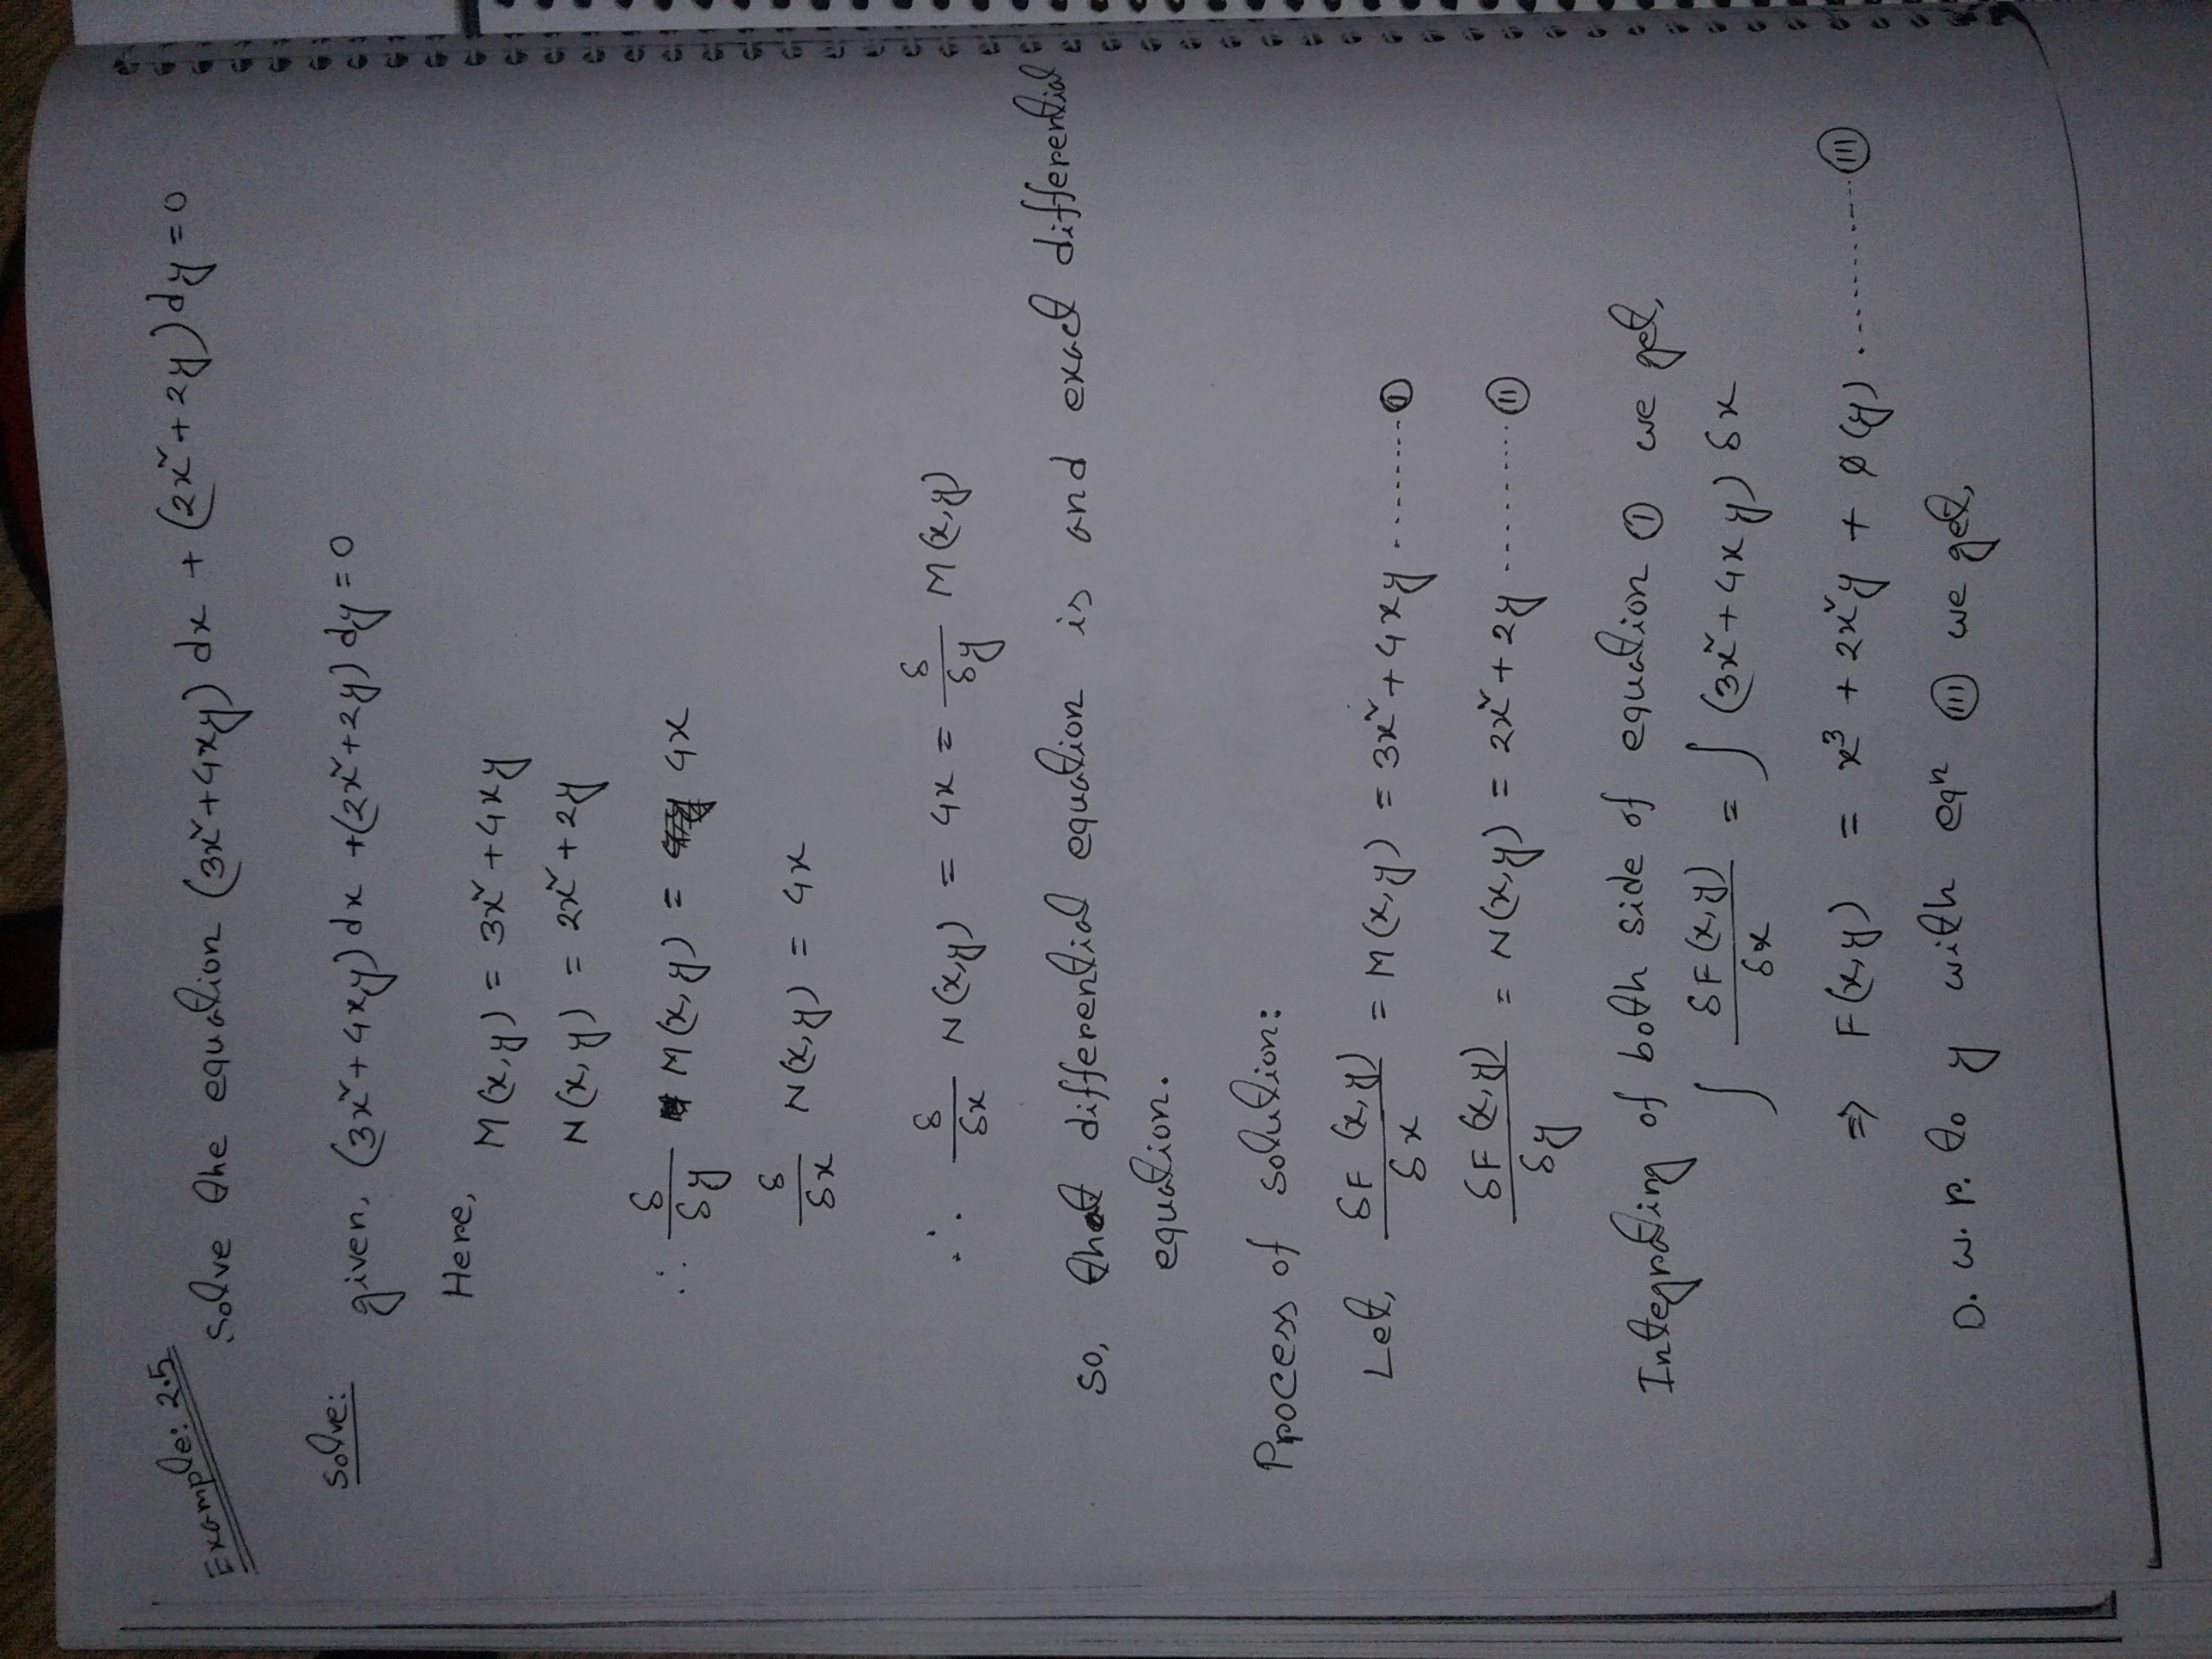 Example: 2.5
Solve the equation (3x² + 4xy) dx + (2x² + 2y) dy = 0
Solve:
given, (3x² + 4xy) dx + (2x² + 2y) dy = 0
Here,
M(x,y) = 3x² + 4xy
N(x,y) = 2x² + 2y
∴ δ/δy M(x,y) = 4x
δ/δx N(x,y) = 4x
∴ δ/δx N(x,y) = 4x = δ/δy M(x,y)
So, that differential equation is and exact differential
equation.
Process of solution:
Let, δF(x,y)/δx = M(x,y) = 3x² + 4xy ......... (I)
δF(x,y)/δy = N(x,y) = 2x² + 2y ......... (II)
Integrating of both side of equation (I) we get,
∫ δF(x,y)/δx = ∫ (3x² + 4xy) δx
⇒ F(x,y) = x³ + 2x²y + ø(y) ......... (III)
D. w. r. to y with eqⁿ (III) we get,